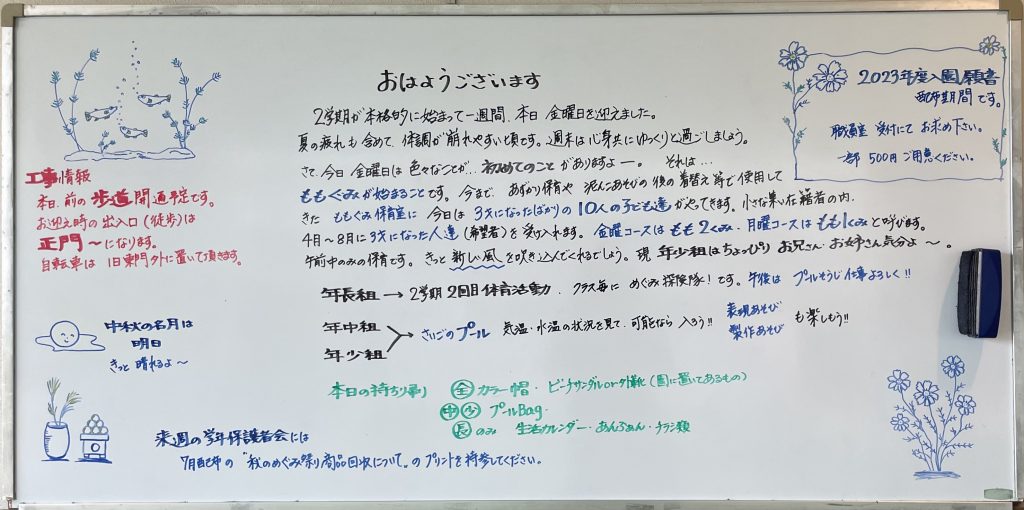 おはようございます
2学期が本格的に始まって一週間、本日 金曜日を迎えました。
夏の疲れも含めて、体調が崩れやすい頃です。週末は心身共にゆっくりと過ごしましょう。
さて、今日金曜日は色々なことが、初めてのことがありますよー。それは…
ももぐみが始まることです。今まで、あずかり保育や 泥んこあそびの後の着替え等で使用して
きた ももぐみ保育室に 今日は 3才になったばかりの10人の子ども達がやってきます。小さな集い在籍者の内、
4月～8月に3才になった人達(希望者)を受け入れます。金曜コースはもも2くみ、月曜コースはもも1くみと呼びます。
午前中のみの保育です。きっと新しい風を吹き込んでくれるでしょう。現 年少組はちょっぴりお兄さんお姉さん気分よ～。
年長組 → 2学期2回目体育活動、クラス毎に めぐみ探険隊!です。午後は プールそうじ仕事よろしく!!
年中組
年少組
さいごのプール 気温・水温の状況を見て、可能なら 入ろう!!
表現あそび
製作あそび
も楽しもう!!
本日の持ち帰り 全 カラー帽・ビーチサンダルor外靴(園に置いてあるもの)
中 少 プールBag.
長 のみ 生活カレンダー・あんふぁん・チラシ類
2023年度入園願書
配布期間です。
職員室 受付にて お求め下さい。
一部 500円ご用意ください。
工事情報
本日、前の歩道開通予定です。
お迎え時の出入口(徒歩)は
正門～になります。
自転車は 旧東門外に置いて頂きます。
中秋の名月は
明日
きっと 晴れるよ～
来週の学年保護者会には
7月配布の "秋のめぐみ祭り商品回収について"のプリントを持参してください。